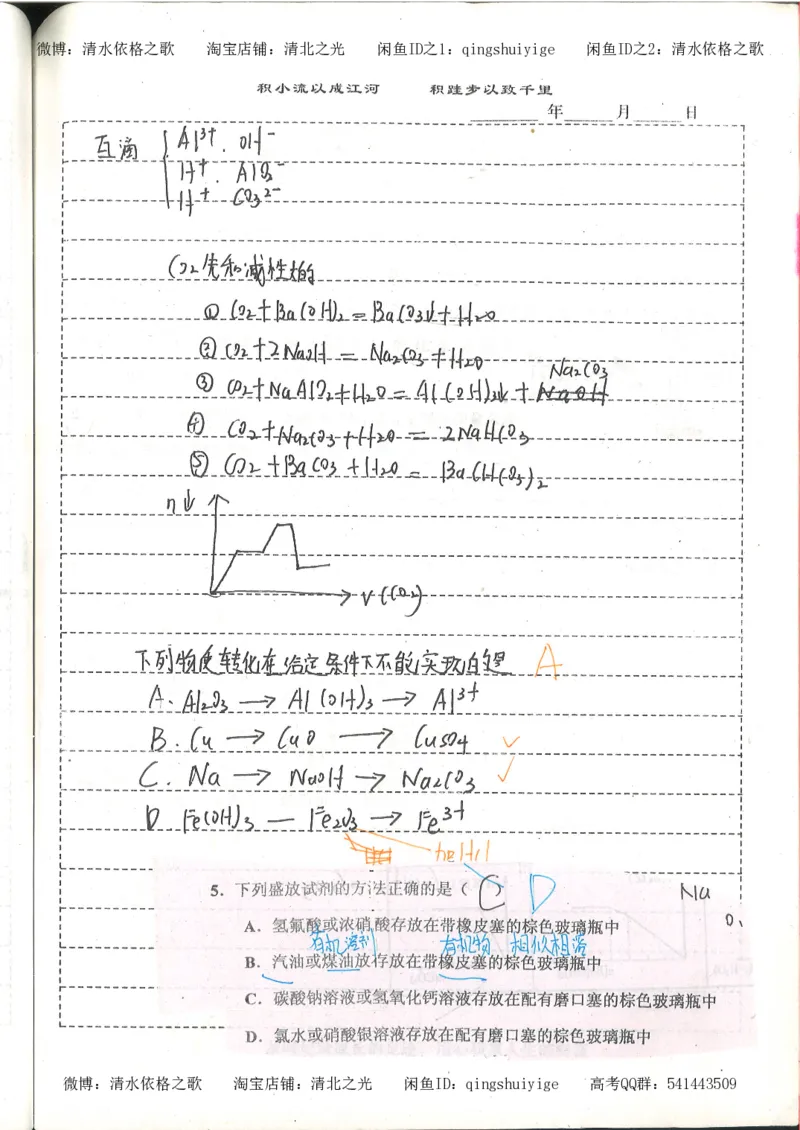 微博：清水依格之歌 淘宝店铺：清北之光 闲鱼ID之1：qingshuiyige 闲鱼ID之2：清水依格之歌
积小流以成江河 积跬步以致千里
年 月 日
互滴 Al³⁺. OH⁻
H⁺. AlO₂⁻
H⁺ CO₃²⁻
CO₂先和碱性大的
① CO₂+Ba(OH)₂=BaCO₃↓+H₂O
② CO₂+2NaOH=Na₂CO₃+H₂O
Na₂CO₃
③ CO₂+NaAlO₂+H₂O=Al(OH)₃↓+NaOH
④ CO₂+Na₂CO₃+H₂O=2NaHCO₃
⑤ CO₂+BaCO₃+H₂O=Ba(HCO₃)₂
n↓
V(CO₂)
下列物质转化在给定条件下不能实现的是 A
A. Al₂O₃→Al(OH)₃→Al³⁺
B. Cu→CuO→CuSO₄ ✓
C. Na→NaOH→Na₂CO₃ ✓
D Fe(OH)₃—Fe₂O₃→Fe³⁺
5. 下列盛放试剂的方法正确的是（C） D
Na
A. 氢氟酸或浓硝酸存放在带橡皮塞的棕色玻璃瓶中
有机溶剂 有机物 相似相溶
B. 汽油或煤油放存放在带橡皮塞的棕色玻璃瓶中
C. 碳酸钠溶液或氢氧化钙溶液存放在配有磨口塞的棕色玻璃瓶中
D. 氯水或硝酸银溶液存放在配有磨口塞的棕色玻璃瓶中
微博：清水依格之歌 淘宝店铺：清北之光 闲鱼ID：qingshuiyige 高考QQ群：541443509